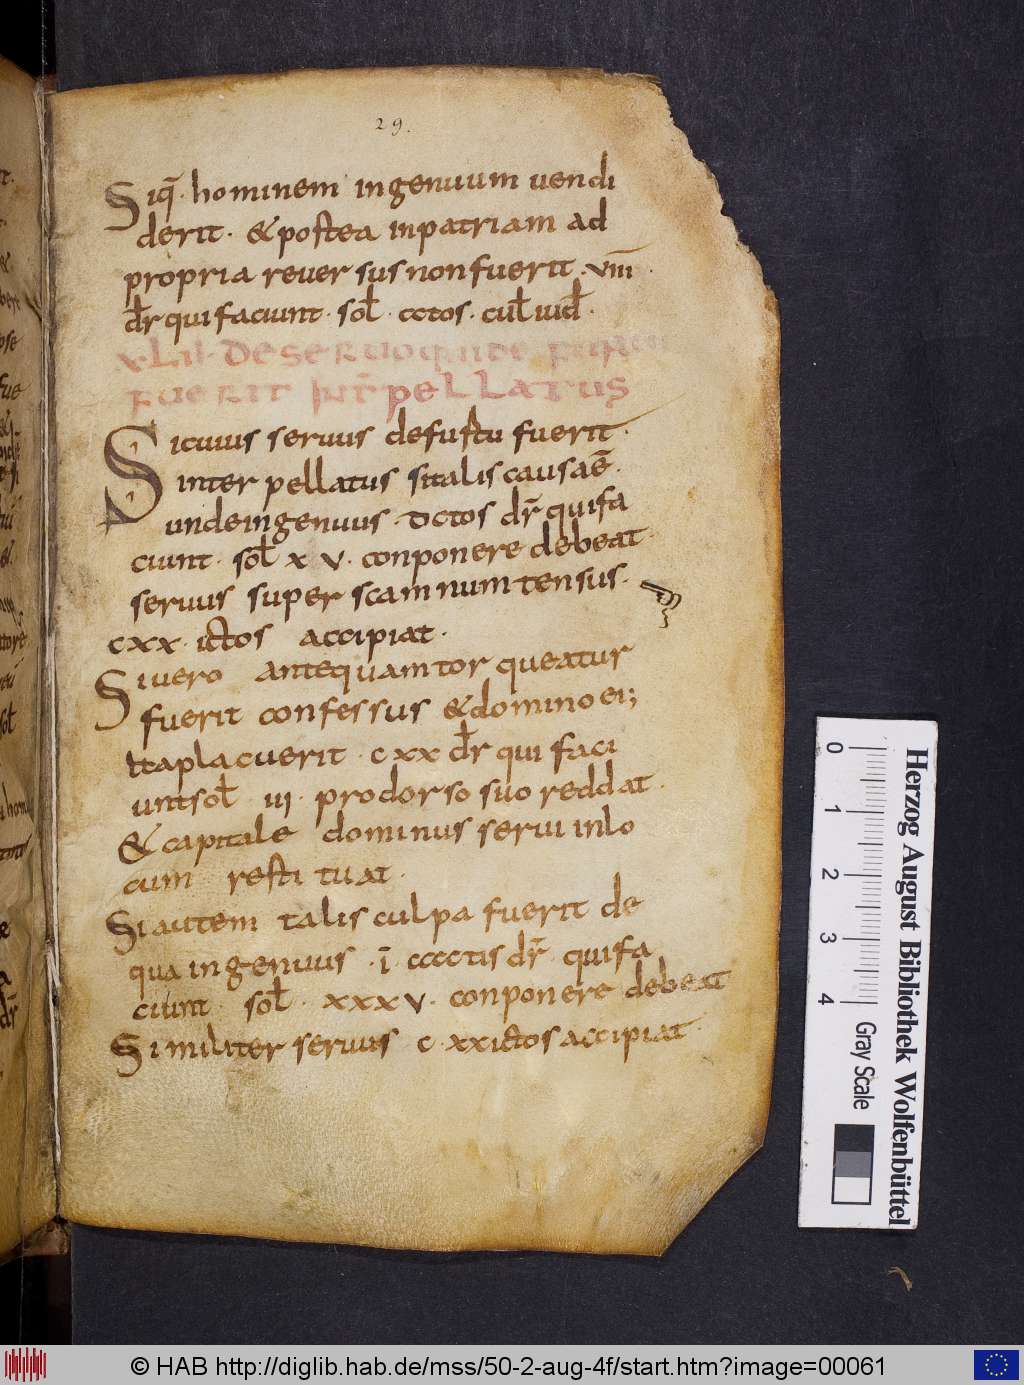 29.
Siq̄ · hominem ingenuum vendi
derit · & postea inpatriam ad
propria reuersus non fuerit · viiii ·
dr̄ qui faciunt · sol̄ · cctos · cul̄ iud̄ ·
xLii · De seruo qui de furtu
fuerit int̄pellatus
Sicuius seruus defustu fuerit ·
inter pellatus si talis causa ē ·
unde ingenuus · dctos dr̄ quifa
ciunt · sol̄ x v · conponere debeat ·
seruus super scamnum tensus ·
cxx · ictos accipiat ·
Siuero antequam torqueatur
fuerit confessus & domino ei;
ita placuerit · cxx dr̄ qui faci
unt sol̄ iii · prodorso suo reddat ·
& capitale dominus serui inlo
cum restituat ·
Si autem talis culpa fuerit de
qua ingenuus · ī · cccctis dr̄ · quifa
ciunt sol̄ · xxxv · conponere debeat
Similiter seruus c · xx ictos accipiat ·
Herzog August Bibliothek Wolfenbüttel
0 1 2 3 4 Gray Scale
© HAB http://diglib.hab.de/mss/50-2-aug-4f/start.htm?image=00061